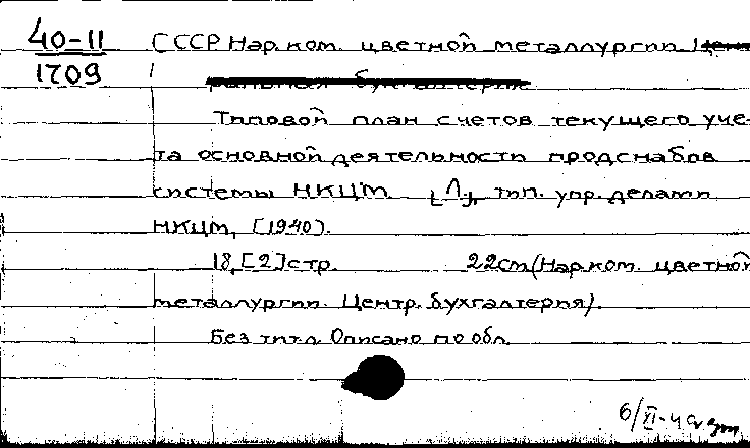 40-11
1709
СССР Нар. ком. цветной металлургии Цен
ральная бухгалтерия
Типовой план счетов текущего уче-
та основной деятельности продснабов
системы НКЦМ. [Л.], тип. упр. делами
НКЦМ, [1940].
18, [2] стр. 22 см (Нар. ком. цветной
металлургии. Центр. бухгалтерия).
Без титл. Описано по обл.
6/XI-40